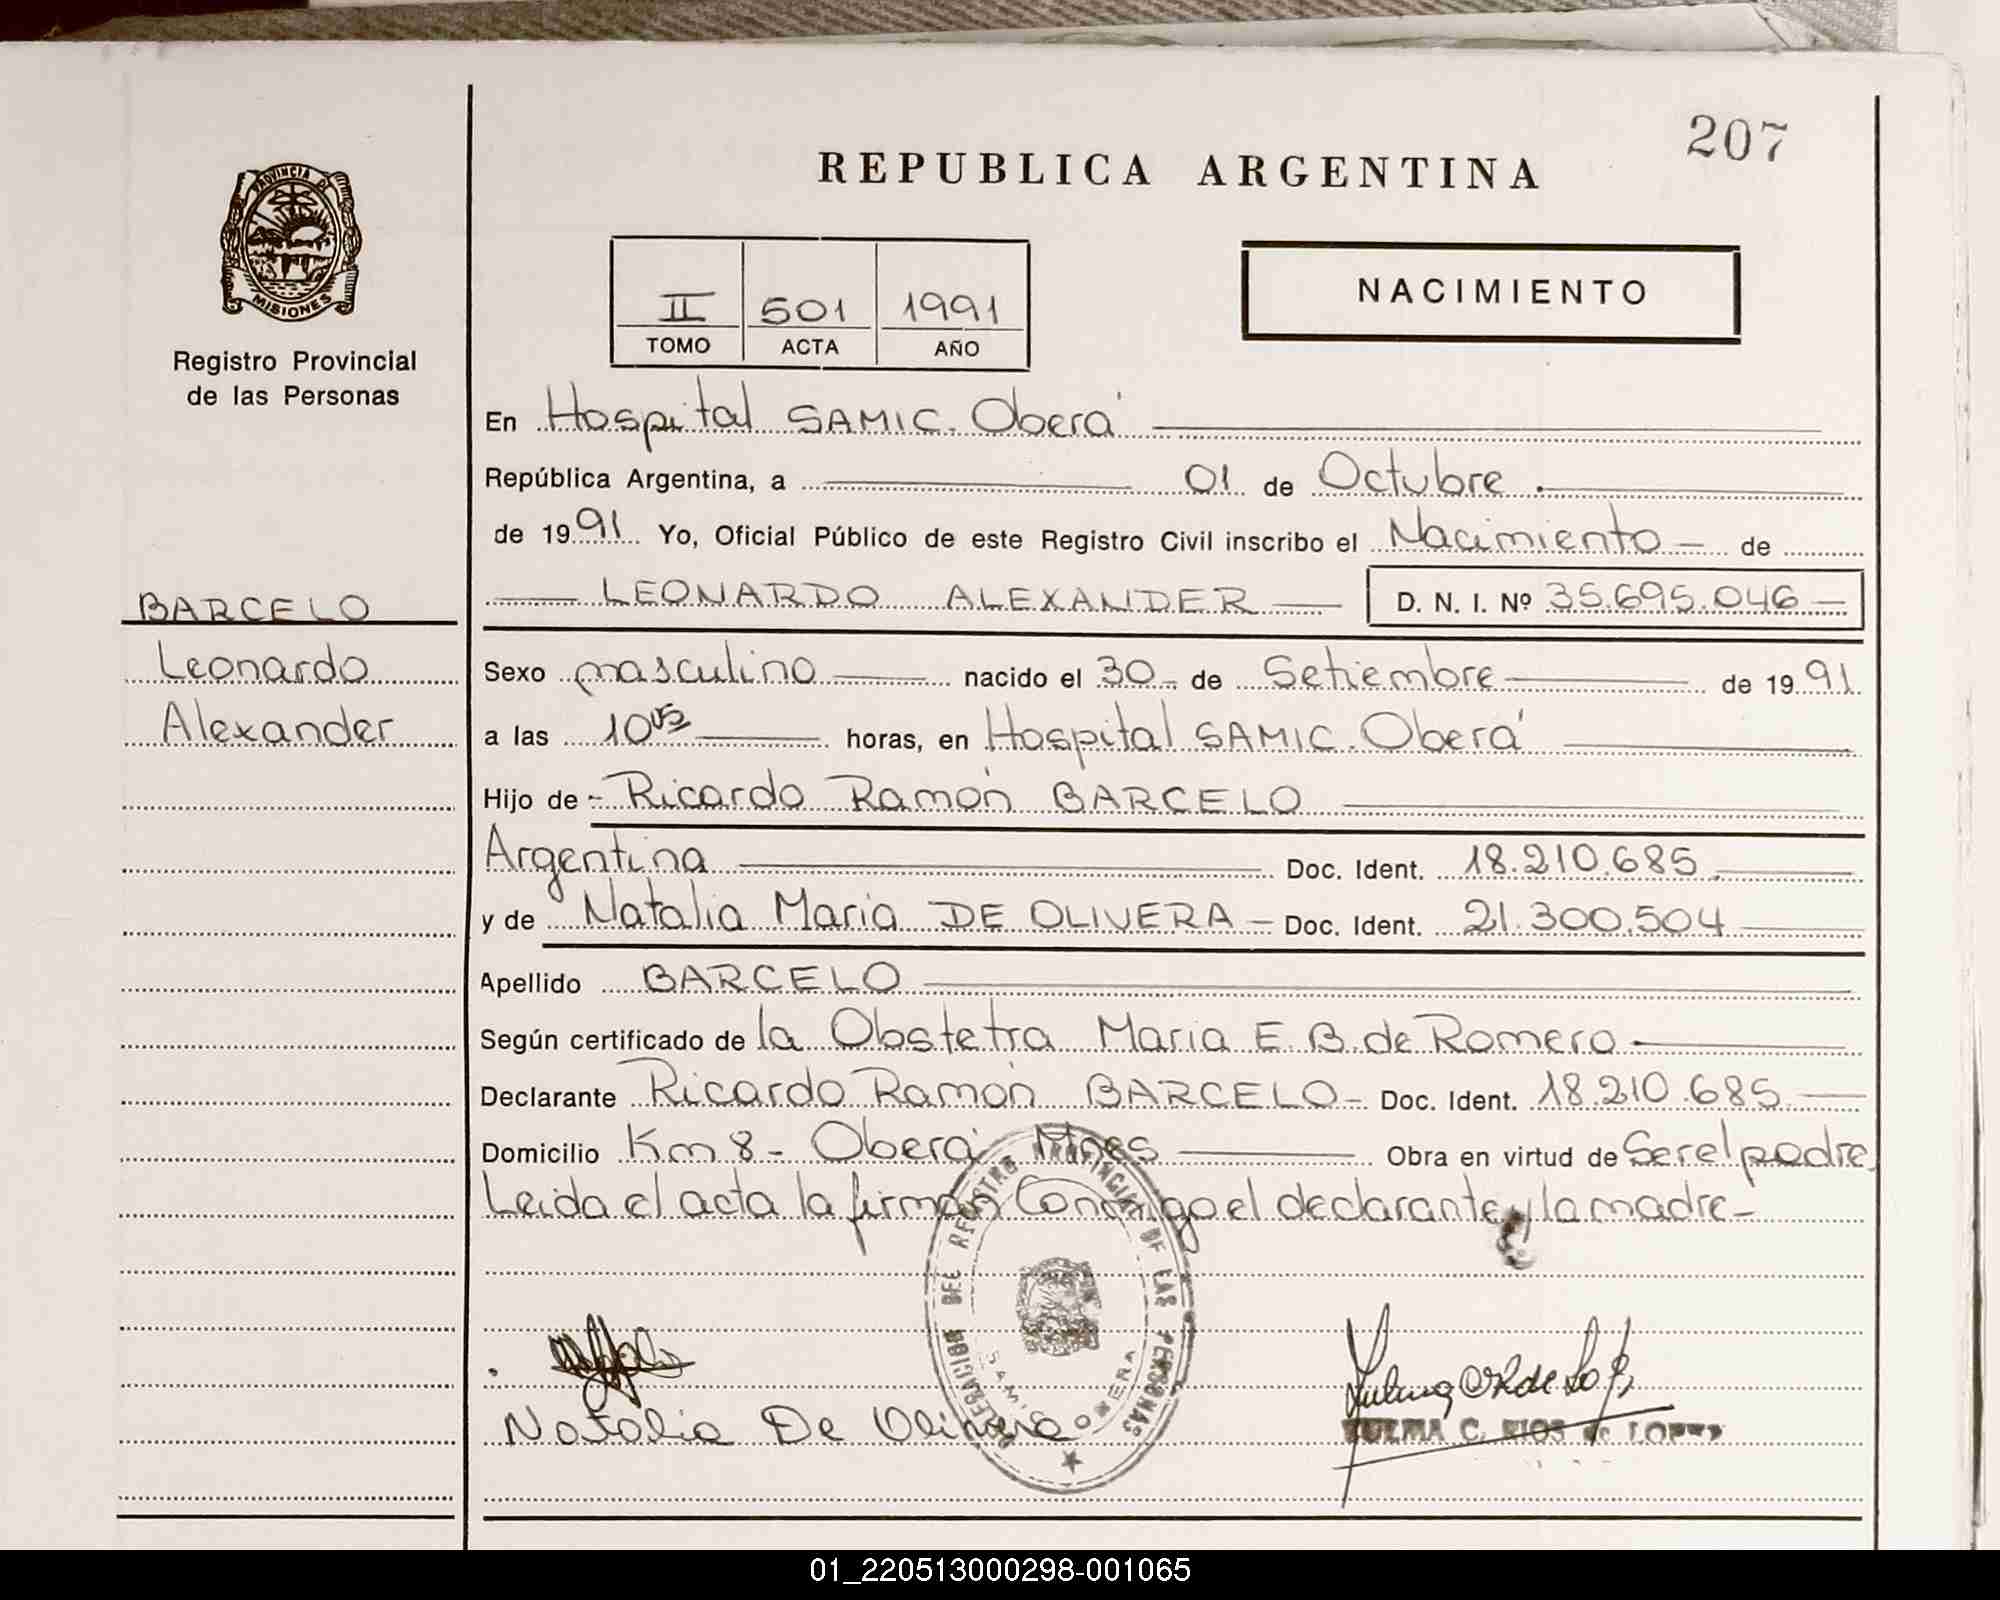 207
REPUBLICA ARGENTINA
PROVINCIA DE
MISIONES
Registro Provincial
de las Personas
II 501 1991
TOMO ACTA AÑO
NACIMIENTO
En Hospital SAMIC. Oberá
República Argentina, a 01 de Octubre.
de 1991 Yo, Oficial Público de este Registro Civil inscribo el Nacimiento - de
BARCELO
LEONARDO ALEXANDER D. N. I. Nº 35.695.046 -
Leonardo
Sexo masculino nacido el 30 - de Setiembre de 1991.
Alexander
a las 10 horas, en Hospital SAMIC. Oberá
Hijo de - Ricardo Ramón BARCELO
Argentina Doc. Ident. 18.210.685.
y de Natalia Maria DE OLIVERA - Doc. Ident. 21.300.504
Apellido BARCELO
Según certificado de la Obstetra Maria E. B. de Romero
Declarante Ricardo Ramón BARCELO - Doc. Ident. 18.210.685
Domicilio Km 8 - Oberá Mnes Obra en virtud de Ser el padre
Leida el acta la firman Conmigo el declarante y la madre -
DELEGACION DEL REGISTRO PROVINCIAL DE LAS PERSONAS
OBERA
Natalia De Olivera
ZULMA C. RIOS de LOPEZ
01_220513000298-001065